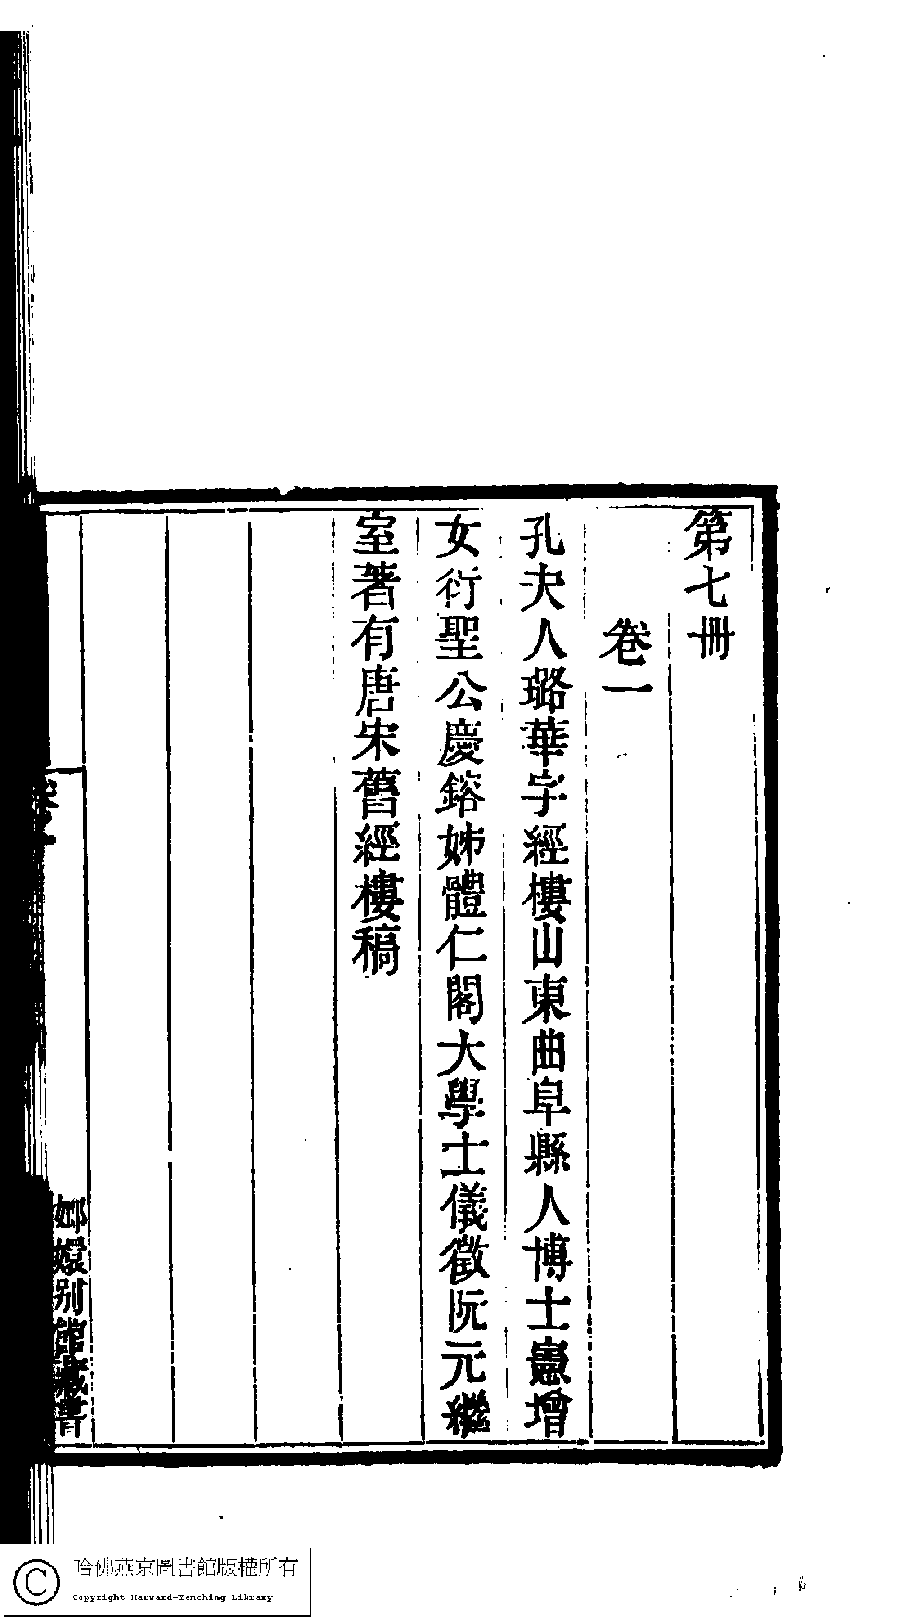 第七冊
卷一
孔夫人璐華字經樓山東曲阜縣人博士憲增
女衍聖公慶鎔姊體仁閣大學士儀徵阮元繼
室著有唐宋舊經樓稿
嫏嬛別館藏書
哈佛燕京圖書館版權所有
Copyright Harvard-Yenching Library